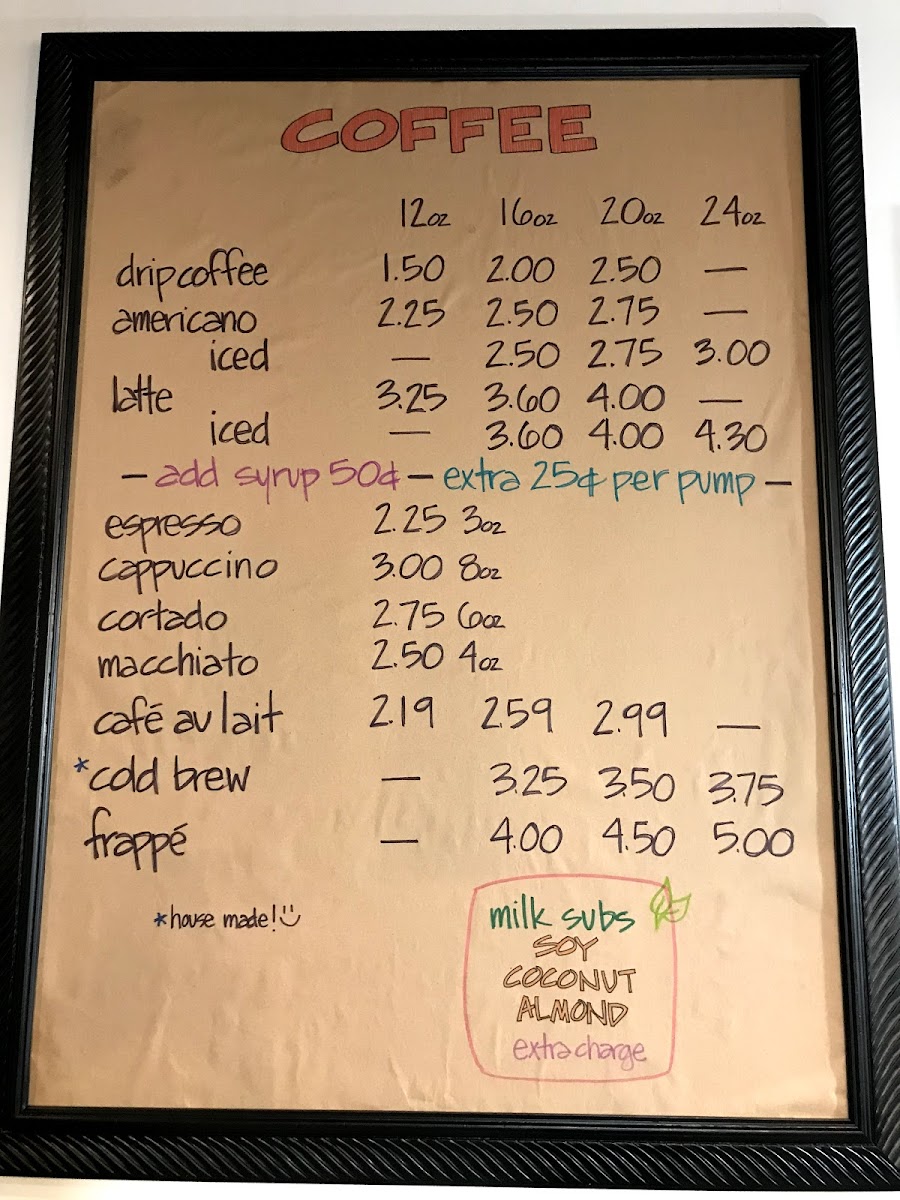 COFFEE
12oz 16oz 20oz 24oz
drip coffee 1.50 2.00 2.50 —
americano 2.25 2.50 2.75 —
iced — 2.50 2.75 3.00
latte 3.25 3.60 4.00 —
iced — 3.60 4.00 4.30
— add syrup 50¢ — extra 25¢ per pump —
espresso 2.25 3oz
cappuccino 3.00 8oz
cortado 2.75 6oz
macchiato 2.50 4oz
café au lait 2.19 2.59 2.99 —
*cold brew — 3.25 3.50 3.75
frappé — 4.00 4.50 5.00
*house made!
milk subs
SOY
COCONUT
ALMOND
extra charge